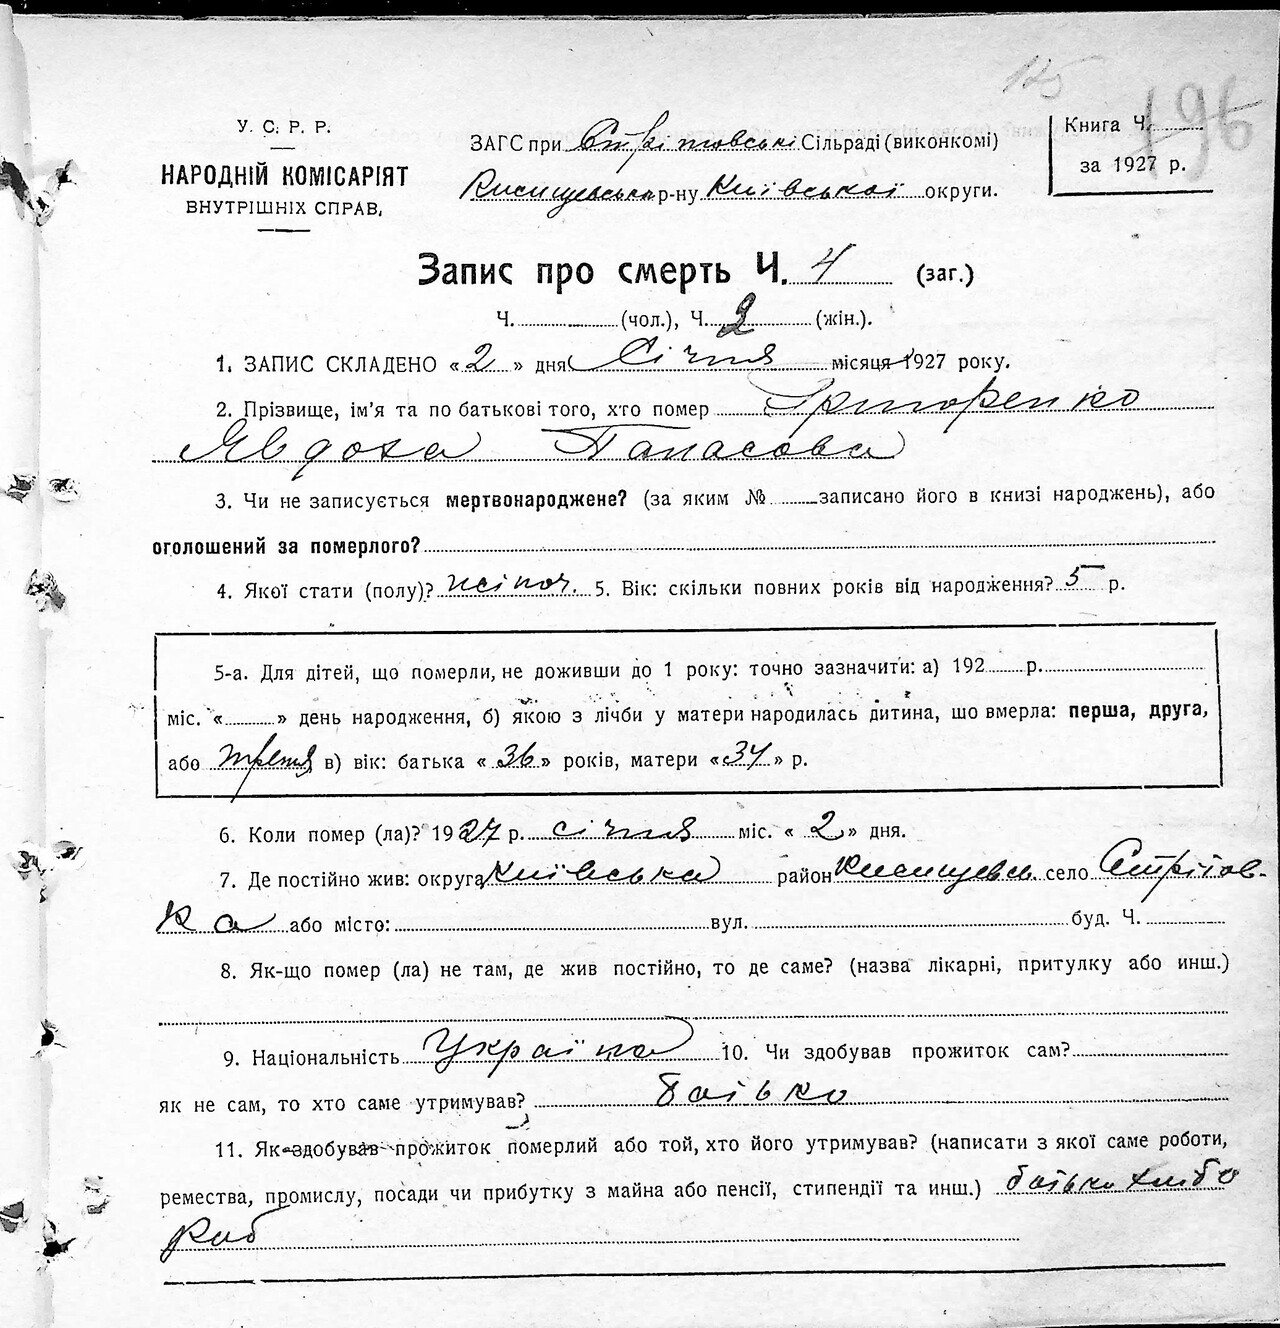 125
196
У. С. Р. Р.
НАРОДНІЙ КОМІСАРІЯТ
ВНУТРІШНІХ СПРАВ,
ЗАГС при Стрітовські Сільраді (виконкомі)
р-ну Київської округи.
Книга Ч.
за 1927 р.
Запис про смерть Ч. 4 (заг.)
Ч. (чол.), Ч. 2 (жін.).
1. ЗАПИС СКЛАДЕНО « 2 » дня Січня місяця 1927 року.
2. Прізвище, ім'я та по батькові того, хто помер Григоренко
Явдоха Панасова
3. Чи не записується мертвонароджене? (за яким № записано його в книзі народжень), або
оголошений за померлого?
4. Якої стати (полу)? жіноч. 5. Вік: скільки повних років від народження? 5 р.
5-а. Для дітей, що померли, не доживши до 1 року: точно зазначити: а) 192 р.
міс. « » день народження, б) якою з лічби у матери народилась дитина, що вмерла: перша, друга,
або третя в) вік: батька « 36 » років, матери « 34 » р.
6. Коли помер (ла)? 1927 р. січня міс. « 2 » дня.
7. Де постійно жив: округа Київська район село Стрітов-
ка або місто: вул. буд. Ч.
8. Як-що помер (ла) не там, де жив постійно, то де саме? (назва лікарні, притулку або инш.)
9. Національність Україна 10. Чи здобував прожиток сам?
як не сам, то хто саме утримував? батько
11. Як здобував прожиток померлий або той, хто його утримував? (написати з якої саме роботи,
ремества, промислу, посади чи прибутку з майна або пенсії, стипендії та инш.) батько хлібо
роб